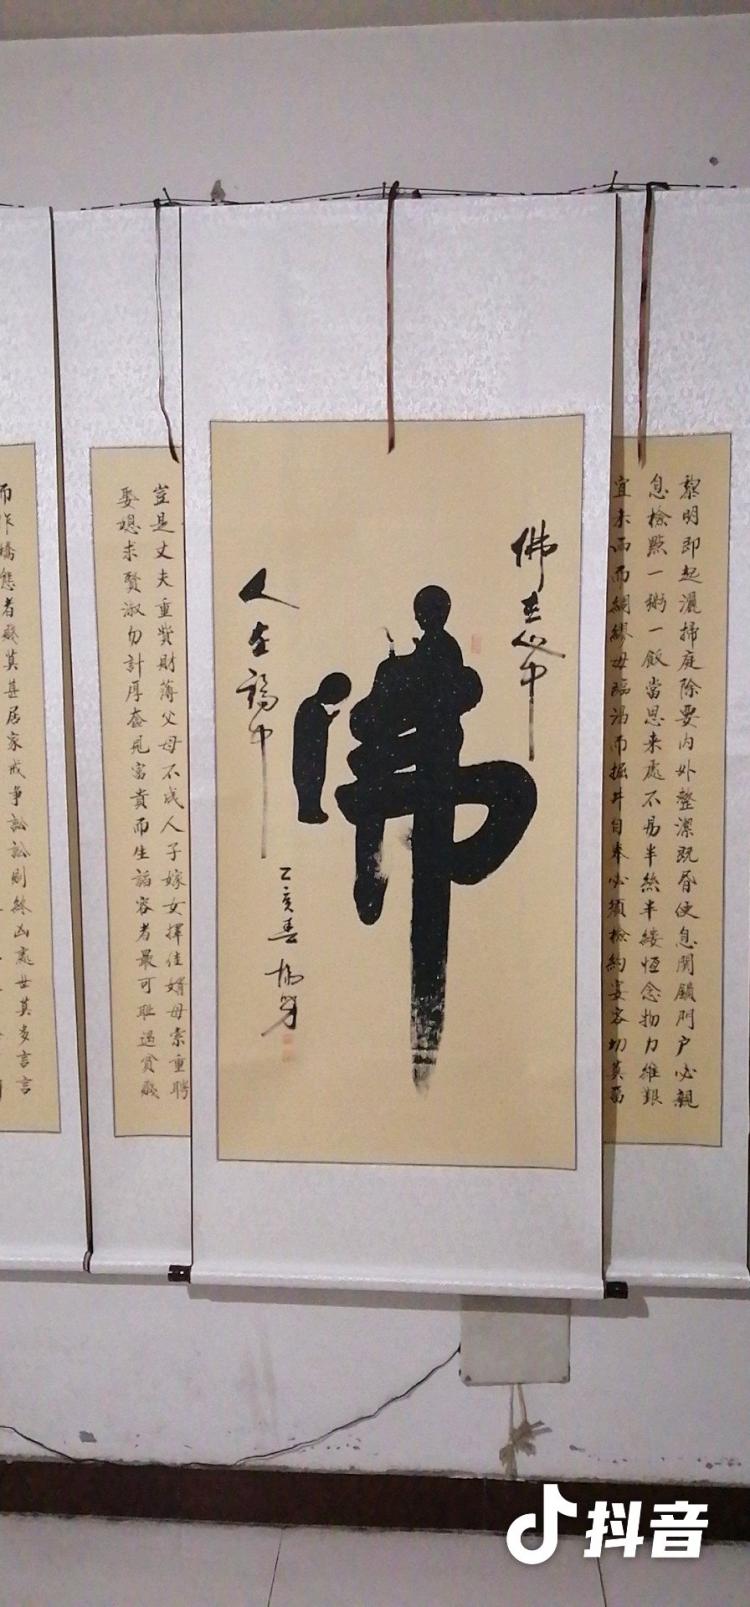 佛在心中
佛
人在福中
乙亥春
黎明即起灑掃庭除要内外整潔既昏便息関鎖門戶必親
息檢點一粥一飯當思来處不易半絲半縷恒念物力維艱
宜未雨而綢繆毋臨渴而掘井自奉必須檢約宴客切莫留
豈是丈夫重貲財薄父母不成人子嫁女擇佳婿毋索重聘
娶媳求賢淑勿計厚奩見富貴而生諂容者最可耻遇貧賤
而作驕態者賤莫甚居家戒爭訟訟則終凶處世莫多言言
抖音